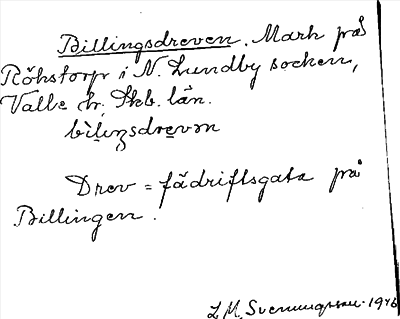 Billingsdreven. Mark på
Rökstorp i N. Lundby socken,
Valle hr, Skb. län.
Drev = fädriftsgata på
Billingen.
L. M. Svenungsson 1946